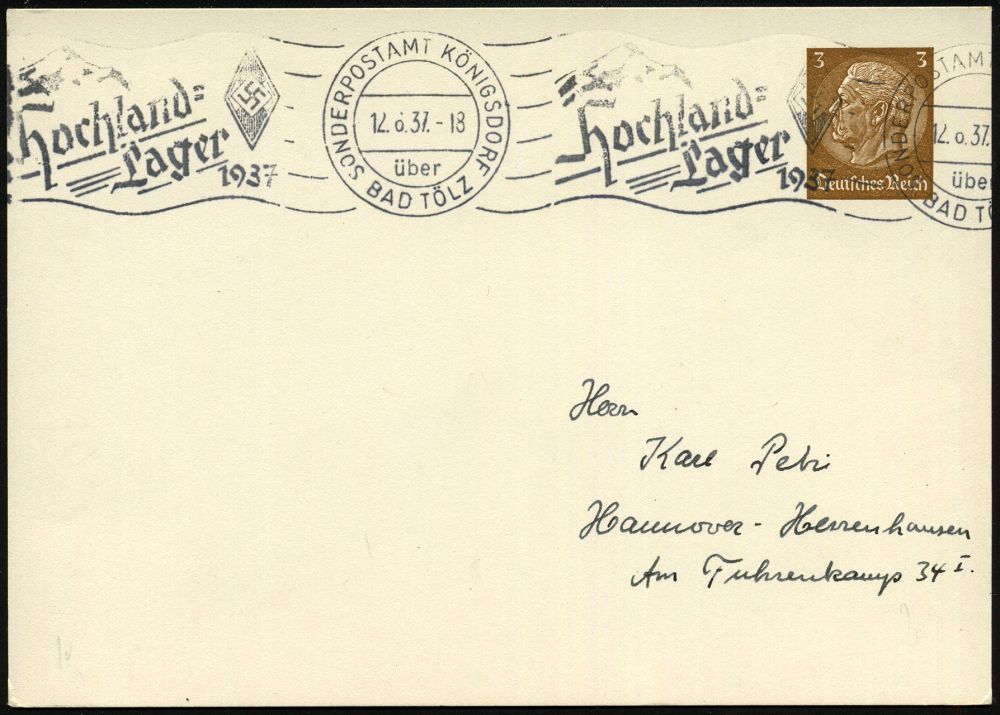 Hochland=
Lager
1937
SONDERPOSTAMT KÖNIGSDORF
12.8.37.-18
über
BAD TÖLZ
Hochland=
Lager
1937
3 3
Deutsches Reich
12.8.37
über
BAD TÖ
Herrn
Karl Petri
Hannover - Herrenhausen
Am Fuhrenkamp 34 I.